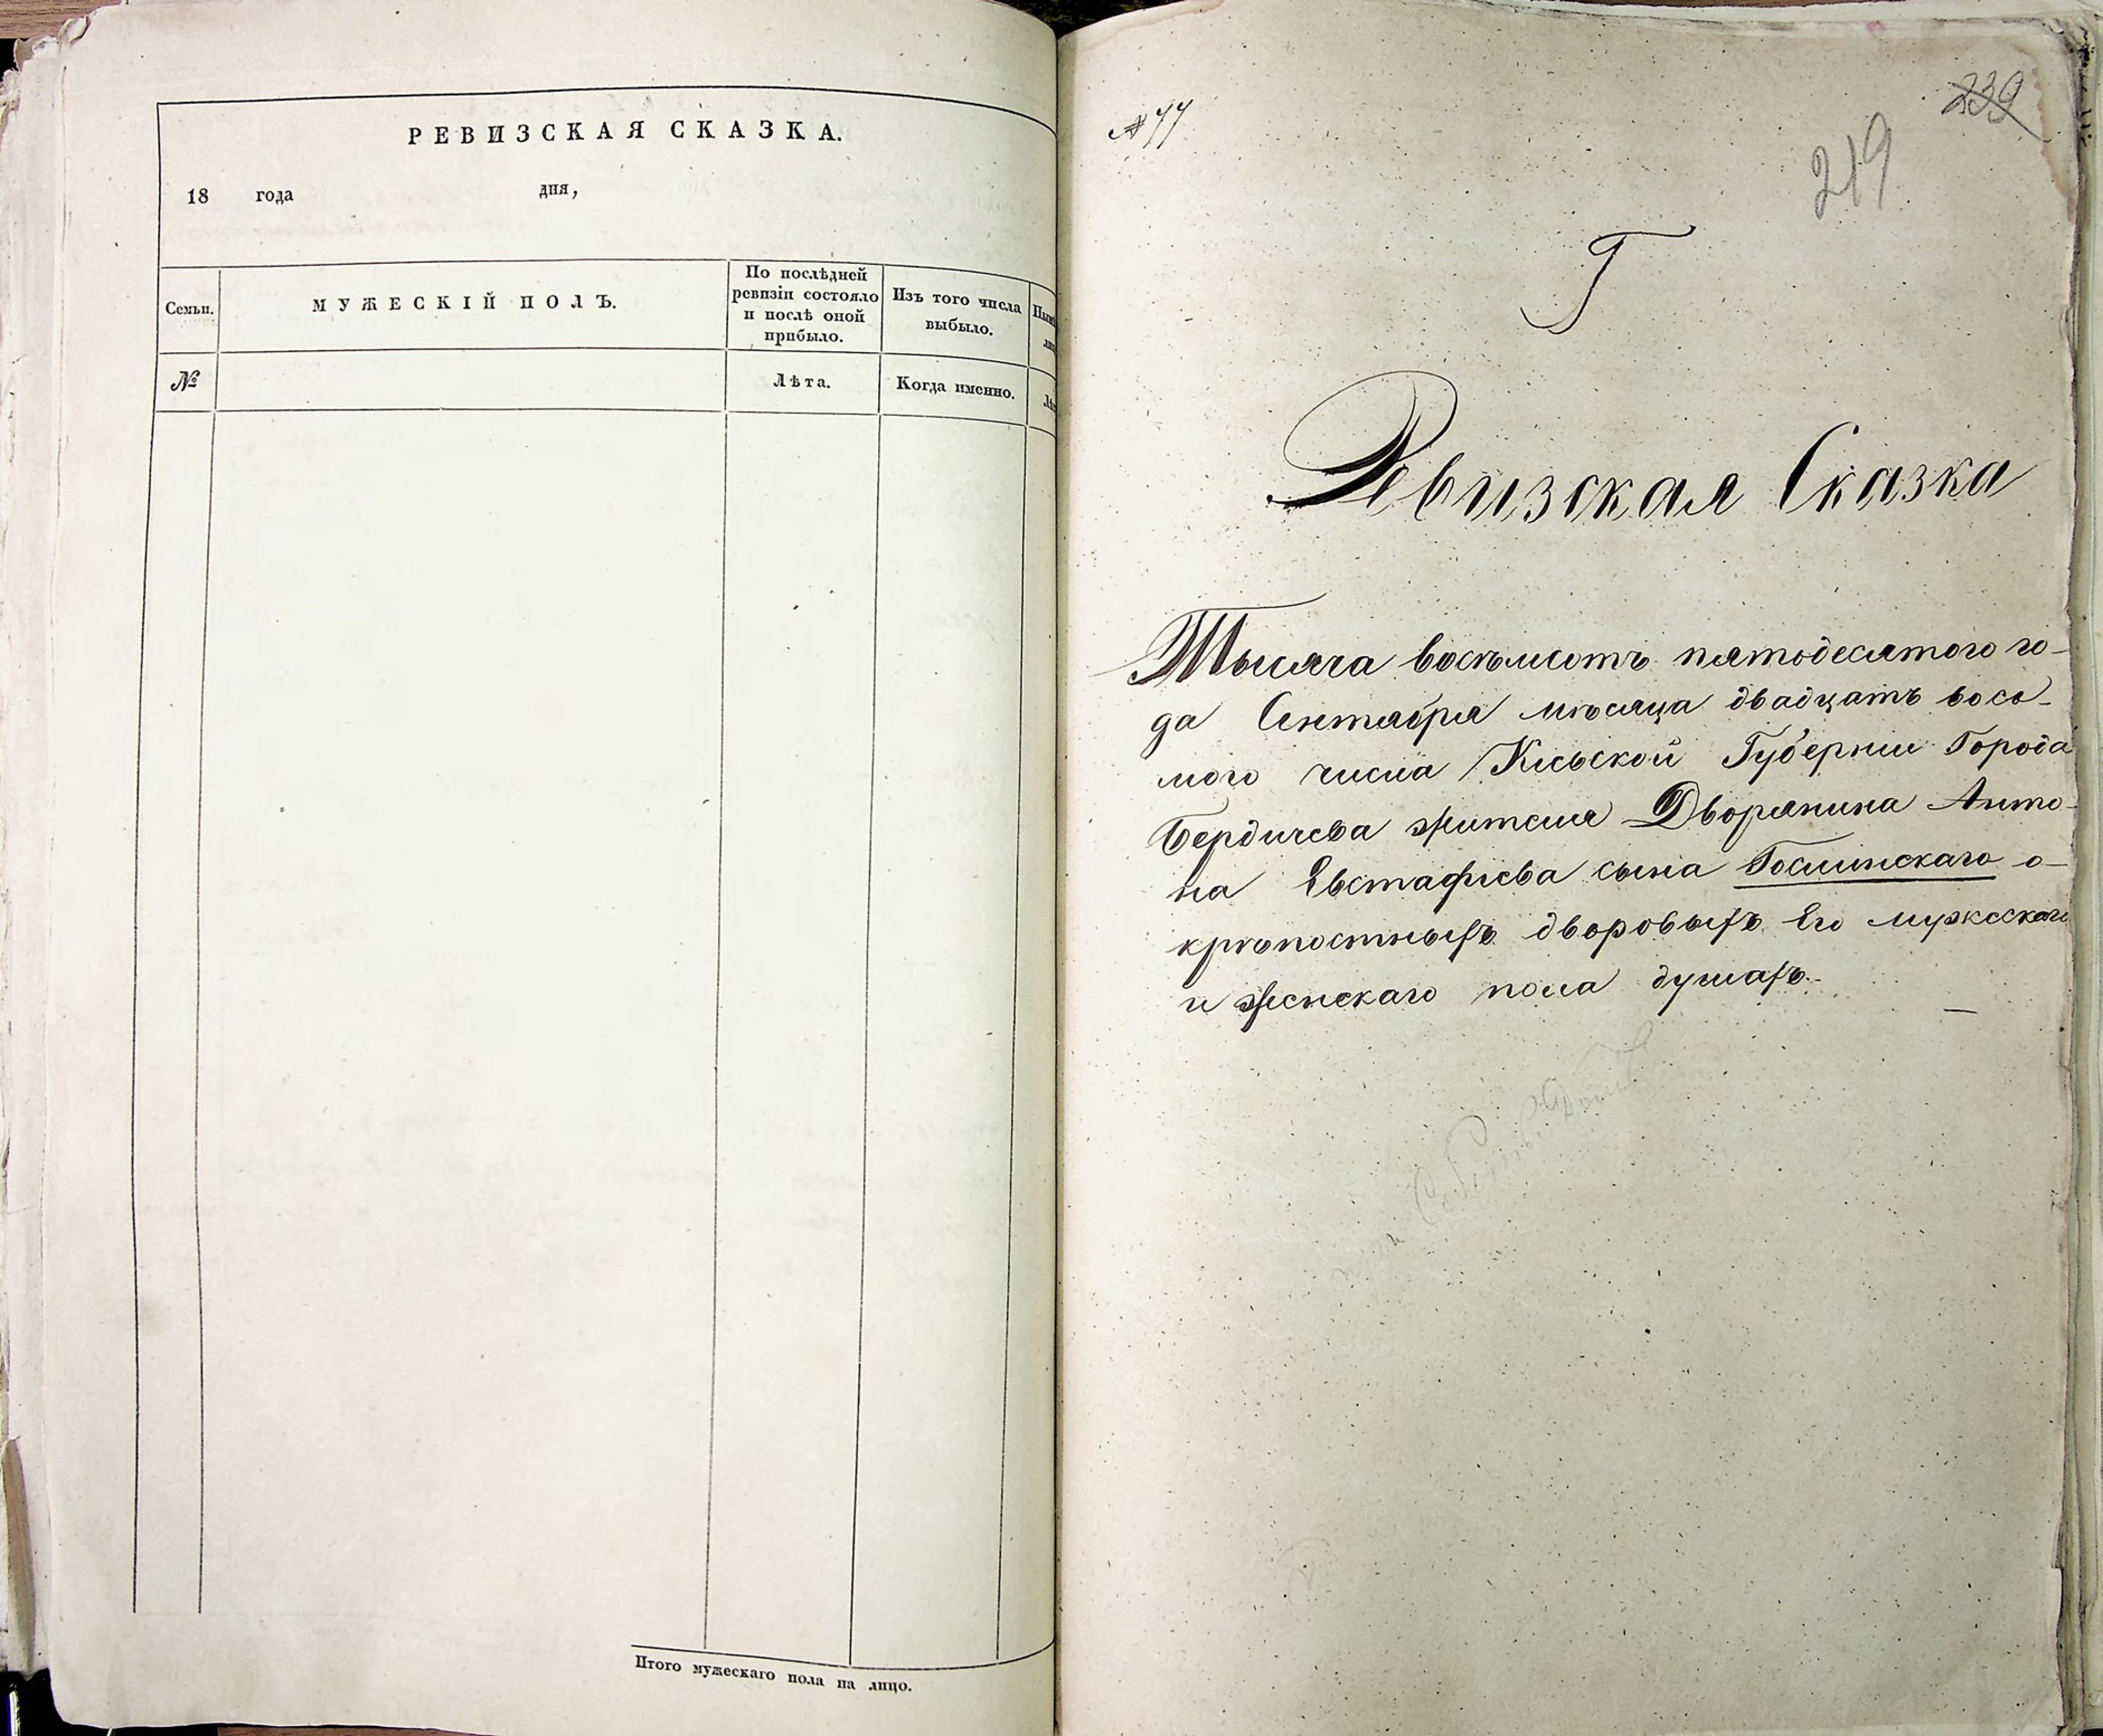 РЕВИЗСКАЯ СКАЗКА.
18 года дня,
Семьи.
МУЖЕСКІЙ ПОЛЪ.
По послѣдней
ревизіи состояло
и послѣ оной
прибыло.
Изъ того числа
выбыло.
№
Лѣта.
Когда именно.
Итого мужескаго пола на лицо.
№ 77
239
219
Г
Ревизская Сказка
Тысяча восѣмсотъ пятодесятого го-
да Сентября мѣсяца двадцатъ вось-
мого числа Кіевской Губерніи Города
Бердичева жителя Дворянина Анто-
на Евстафіева сына Гослинскаго о-
крѣпостныхъ дворовыхъ Его мужескаго
и женскаго пола душахъ.